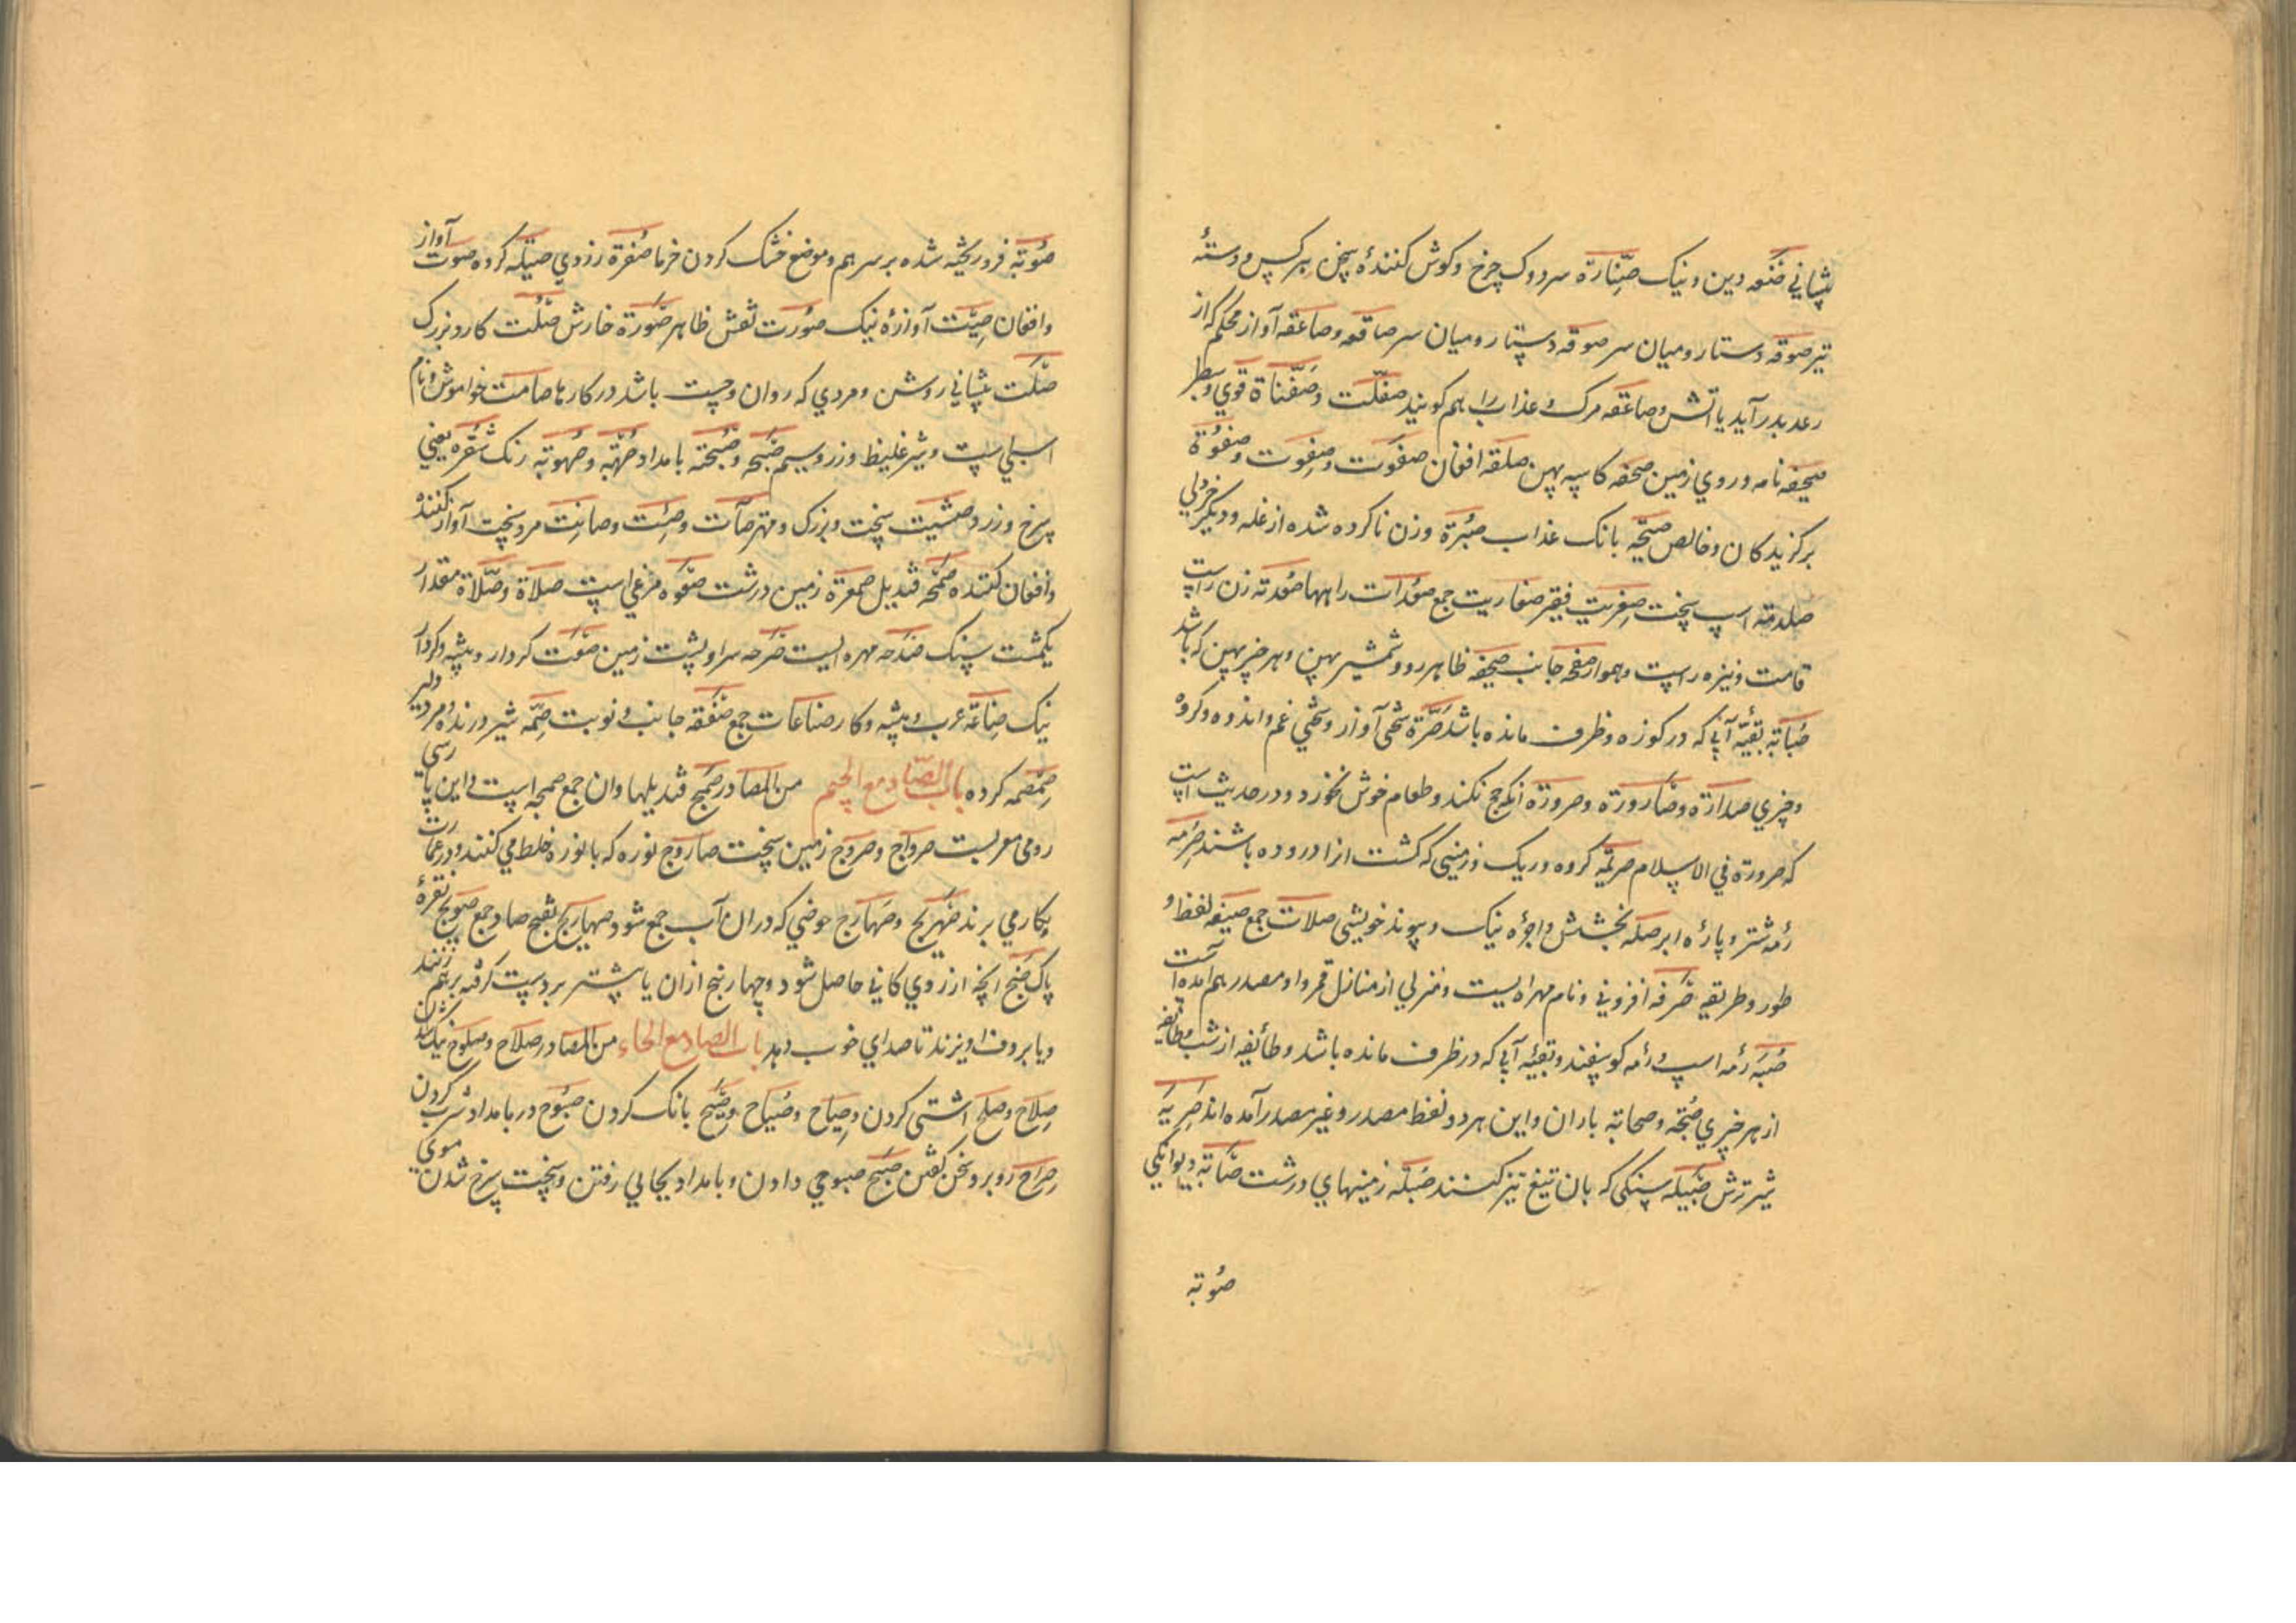 پیشانی صنعه دین و نیک صنارة سر دوک چرخ و کوش کنندهٔ سخن هر کس و دستهٔ
تیر صوقه دستار و میان سر صوقه دستار و میان سر صاقعه و صاعقه آواز محکم که از
رعد بدر آید یا آتش و صاعقه مرک و عذاب را هم کویند صفلت و صفناة قوی و سطبر
صحیفه نامه و روی زمین صحفه کاسه پهن صلقه افغان صفوت و صفوت و صفوة
برکزیدکان و خالص صیحه بانک عذاب صبرة وزن ناکرده شده از غله و دیکر خردلی
صلدمة اسپ سخت صفریت فقیر صفاریت جمع صؤدات راهها صعدته زن راست
قامت و نیزه راست و هموار صفحه جانب صحیفه ظاهر رو و شمشیر پهن و هر چیز پهن که باشد
صبابة بقیّه آبی که در کوزه و ظرف مانده باشد صرّة سختی آواز و سختی غم و اندوه و کروه
و چیزی صدارة و صارورة و صرورة آنکه حج نکند و طعام خوش نخورد و در حدیث است
که صرورة فی الاسلام صریمه کروه و ریک و زمینی که کشت از ا دروده باشند صرمه
رمه شتر و پاره ابر صله بخشش و اجره نیک و پیوند خویشی صلات جمع صیغه لفظ و
طور و طریقه صرفه افزونی و نام مهره ایست و منزلی از منازل قمر و او مصدر هم آمده است
صبّه رمه اسپ و رمه کوسفند و بقیّه آبی که در ظرف مانده باشد و طائفه از شب و طائفه
از هر چیزی صبحه و صحابه باران و این هر دو لفظ مصدر و غیر مصدر آمده اند صربه
شیر ترش صبیله سنکی که بان تیغ تیز کنند صبله زمینهای درشت صابه دیوانکی
صوبه
صوبه فرو ریخته شده بر سر هم و موضع خشک کردن خرما صفرة زردی صیله کروه صوت آواز
و افغان صیت آوازهٔ نیک صورت نقش ظاهر صورة خارش صلت کارد بزرک
صلت پیشانی روشن و مردی که روان و چست باشد در کارها صامت خواموش و نام
اسپلی است و شیر غلیظ و زر و سیم صبحه و صبحته بامداد صهبه و صهوبه رنک شقره یعنی
سرخ و زرد صتیت سخت و بزرک و مهتر صآت و صئت و صائت مرد سخت آواز کننده
و افغان کننده صمحه قندیل صمعرة زمین درشت صعوه مرغی است صلاة و صلاة مقدار
یکمشت سنک صدحه مهره ایست صرحه سرا و پشت زمین صنعت کردار و پیشه و کردار
نیک صناعة عرب و پیشه و کار صناعات جمع صفقه جانب و نوبت صمه شیر درنده و مرد دلیر
صمصمه کرده باب الصاد مع الجیم من المصادر صمج قندیلها و ان جمع صمجه است و این پارسی
رومی معربست صرواج و صروج زمین سخت صاروج نوره که با نوره خلط میکنند و در عمارت
بکار می برند صهریج و صهارج حوضی که دران آب جمع شود صهیاریج بفتح صاد جمع صویج نقرهٔ
پاک صنج آنچه از روی کانی حاصل شود و چهار سنج ازان یا پیشتر بر دست کرفته بر هم زنند
و یا بر دف آویزند تا صدای خوب دهد باب الصاد مع الحاء من المصادر صلاح و صلوح نیک شدن
صلاح و صلح اشتی کردن و صیاح و صیاح و صیح بانک کردن صبوح در بامداد شرب کردن
صراح روبرو سخن کفتن صبح صبوحی دادن و بامداد بجائی رفتن و سخت سرخ شدن موی